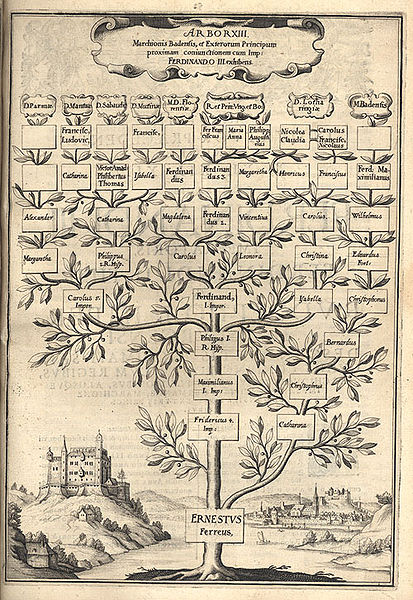 ARBOR XIII.
Marchionis Badensis, et Exterorum Principum
proximam coniunctionem cum Imp:
FERDINANDO III. exhibens.
D. Parmæ
D. Mantuæ
D. Sabaudiæ
D. Mutinæ
M.D. Flo-
rentiæ
R. et Prin: Vng. et Bo.
D. Lotha
ringiæ
M. Badensis
Francisc,
Ludovic,
Francisc,
Fer. Fran
ciscus
Maria
Anna
Philipp
Augusti
nus
Nicolea
Claudia
Carolus
Francisc,
Nicolaus
Catharina
Victor Amad
Philibertus
Thomas
Isabella
Ferdinan
dus
Ferdinan
dus 3.
Margaretha
Henricus
Franciscus
Ferd. Ma-
ximilianus
Alexander
Catharina
Magdalena
Ferdinan
dus 2.
Vincentius
Carolus.
Wilhelmus
Margaretha
Philippus
2. R. Hisp.
Carolus
Leonora
Christina
Eduardus
Fort:
Carolus 5.
Imper.
Ferdinand,
I. Imper.
Ysabella
Christophorus
Philippus I.
R. Hisp.
Bernardus
Maximilianus
I. Imp:
Christophorus
Fridericus 4.
Imp:
Catharina
ERNESTVS
Ferreus,